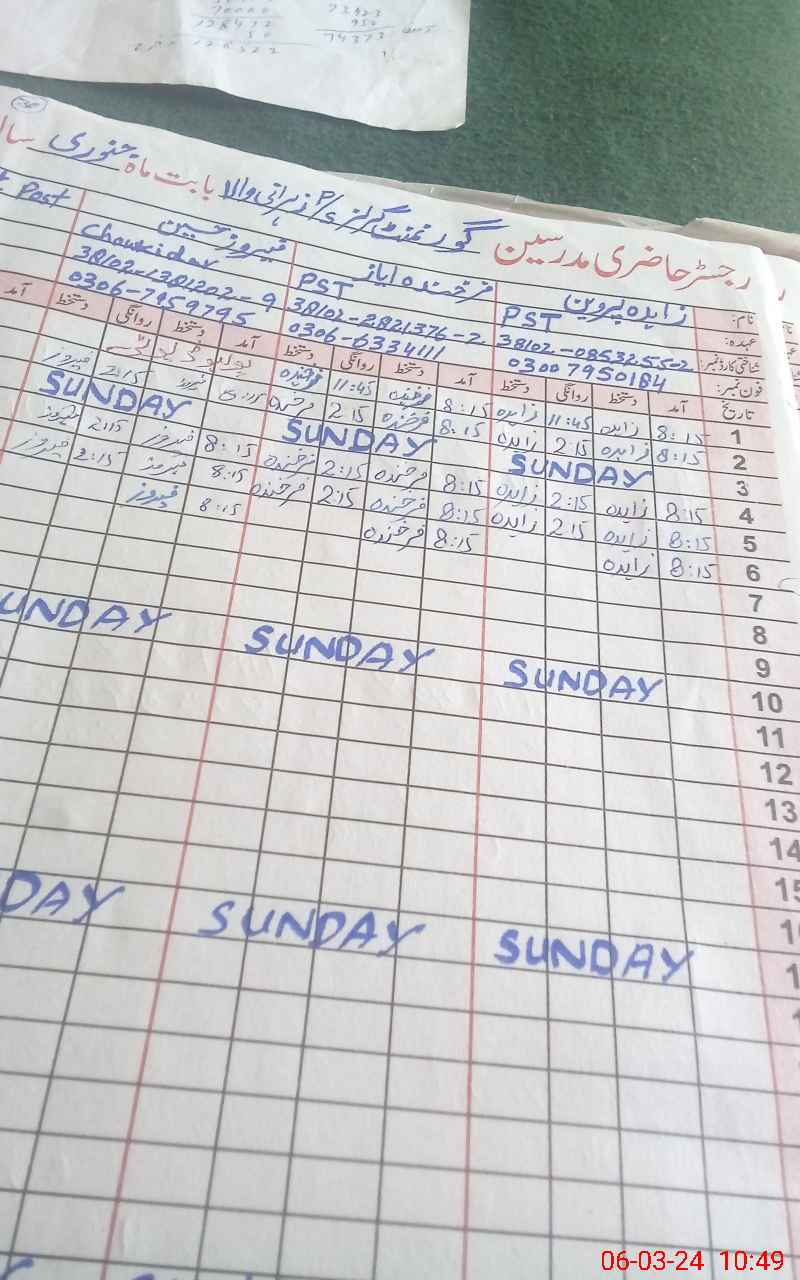 70000
128472
50
128522
73423
950
74373
رجسٹر حاضری مدرسین گورنمنٹ گرلز P/S زہرائی والا بابت ماہ جنوری سال
نام: زاہدہ پروین فرخندہ ایاز فیروز حسین
عہدہ: PST PST Chowkidar Post
شناختی کارڈ نمبر: 38102-0853255-2 38102-2821376-2 38102-1381202-9
فون نمبر: 0300 7950184 0306-6334111 0306-7959795
تاریخ آمد دستخط روانگی دستخط آمد دستخط روانگی دستخط آمد دستخط روانگی دستخط آمد
1 8:15 زاہدہ 11:45 زاہدہ 8:15 فرخندہ 11:45 فرخندہ
2 8:15 زاہدہ 2:15 زاہدہ 8:15 فرخندہ 2:15 فرخندہ 8:15 فیروز 2:15 فیروز
3 SUNDAY SUNDAY SUNDAY
4 8:15 زاہدہ 2:15 زاہدہ 8:15 فرخندہ 2:15 فرخندہ 8:15 فیروز 2:15 فیروز
5 8:15 زاہدہ 2:15 زاہدہ 8:15 فرخندہ 2:15 فرخندہ 8:15 فیروز 2:15 فیروز
6 8:15 زاہدہ 8:15 فرخندہ 8:15 فیروز
7
8
9
10 SUNDAY SUNDAY UNDAY
11
12
13
14
15
1
1 SUNDAY SUNDAY DAY
06-03-24 10:49